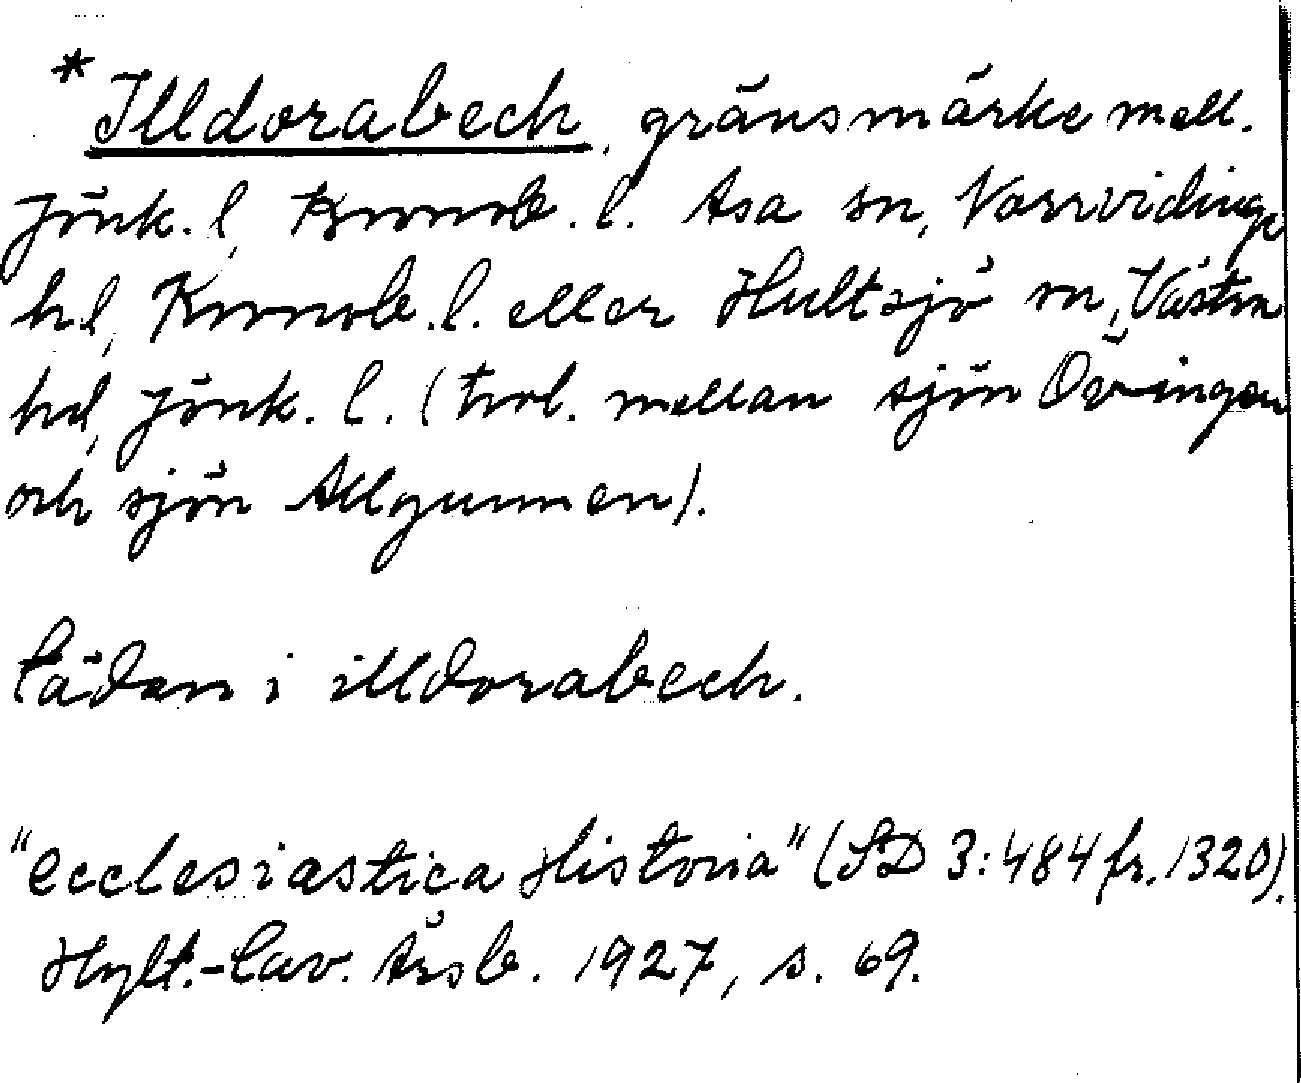 *Illdorabech, gränsmärke mell.
Jönk. l, Kronob. l. Asa sn, Norrvidinge
hd, Kronob. l. eller Hultsjö sn, Västra
hd, Jönk. l. (trol. mellan sjön Övingen
och sjön Allgunnen).
tädan i illdorabech.
"ecclesiastica Historia" (SD 3:484 fr. 1320).
Hylt.-Cav. Årsb. 1927, s. 69.